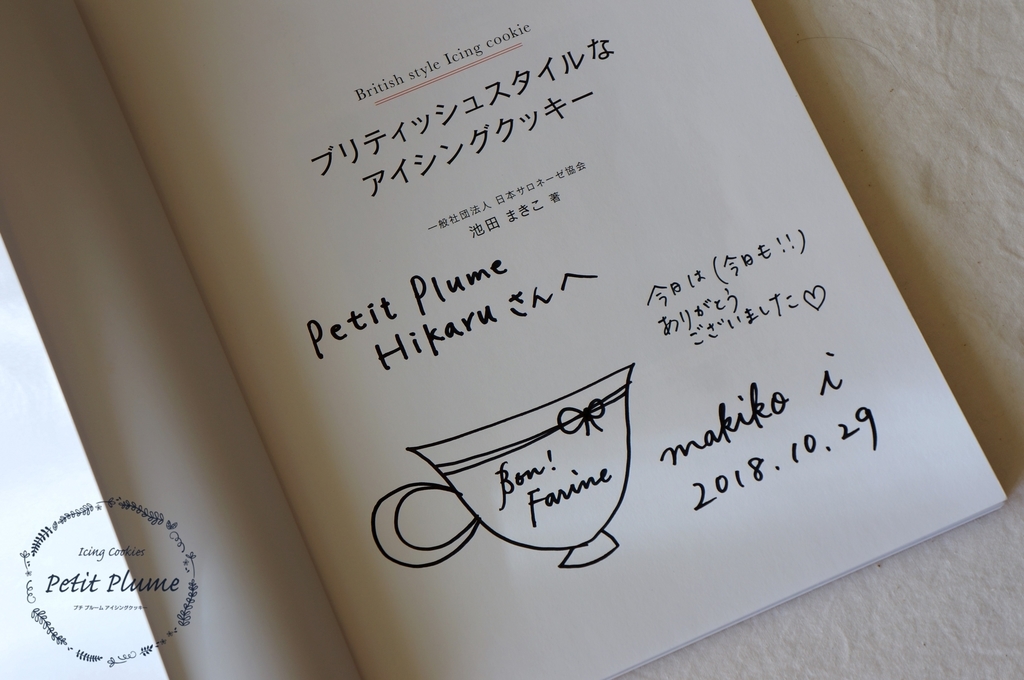 British style Icing cookie
ブリティッシュスタイルな
アイシングクッキー
一般社団法人 日本サロネーゼ協会
池田 まきこ 著
Petit Plume
Hikaruさんへ
今日は(今日も!!)
ありがとう
ございました♡
Bon!
Farine
makiko i
2018.10.29
Icing Cookies
Petit Plume
プチ プルーム アイシングクッキー